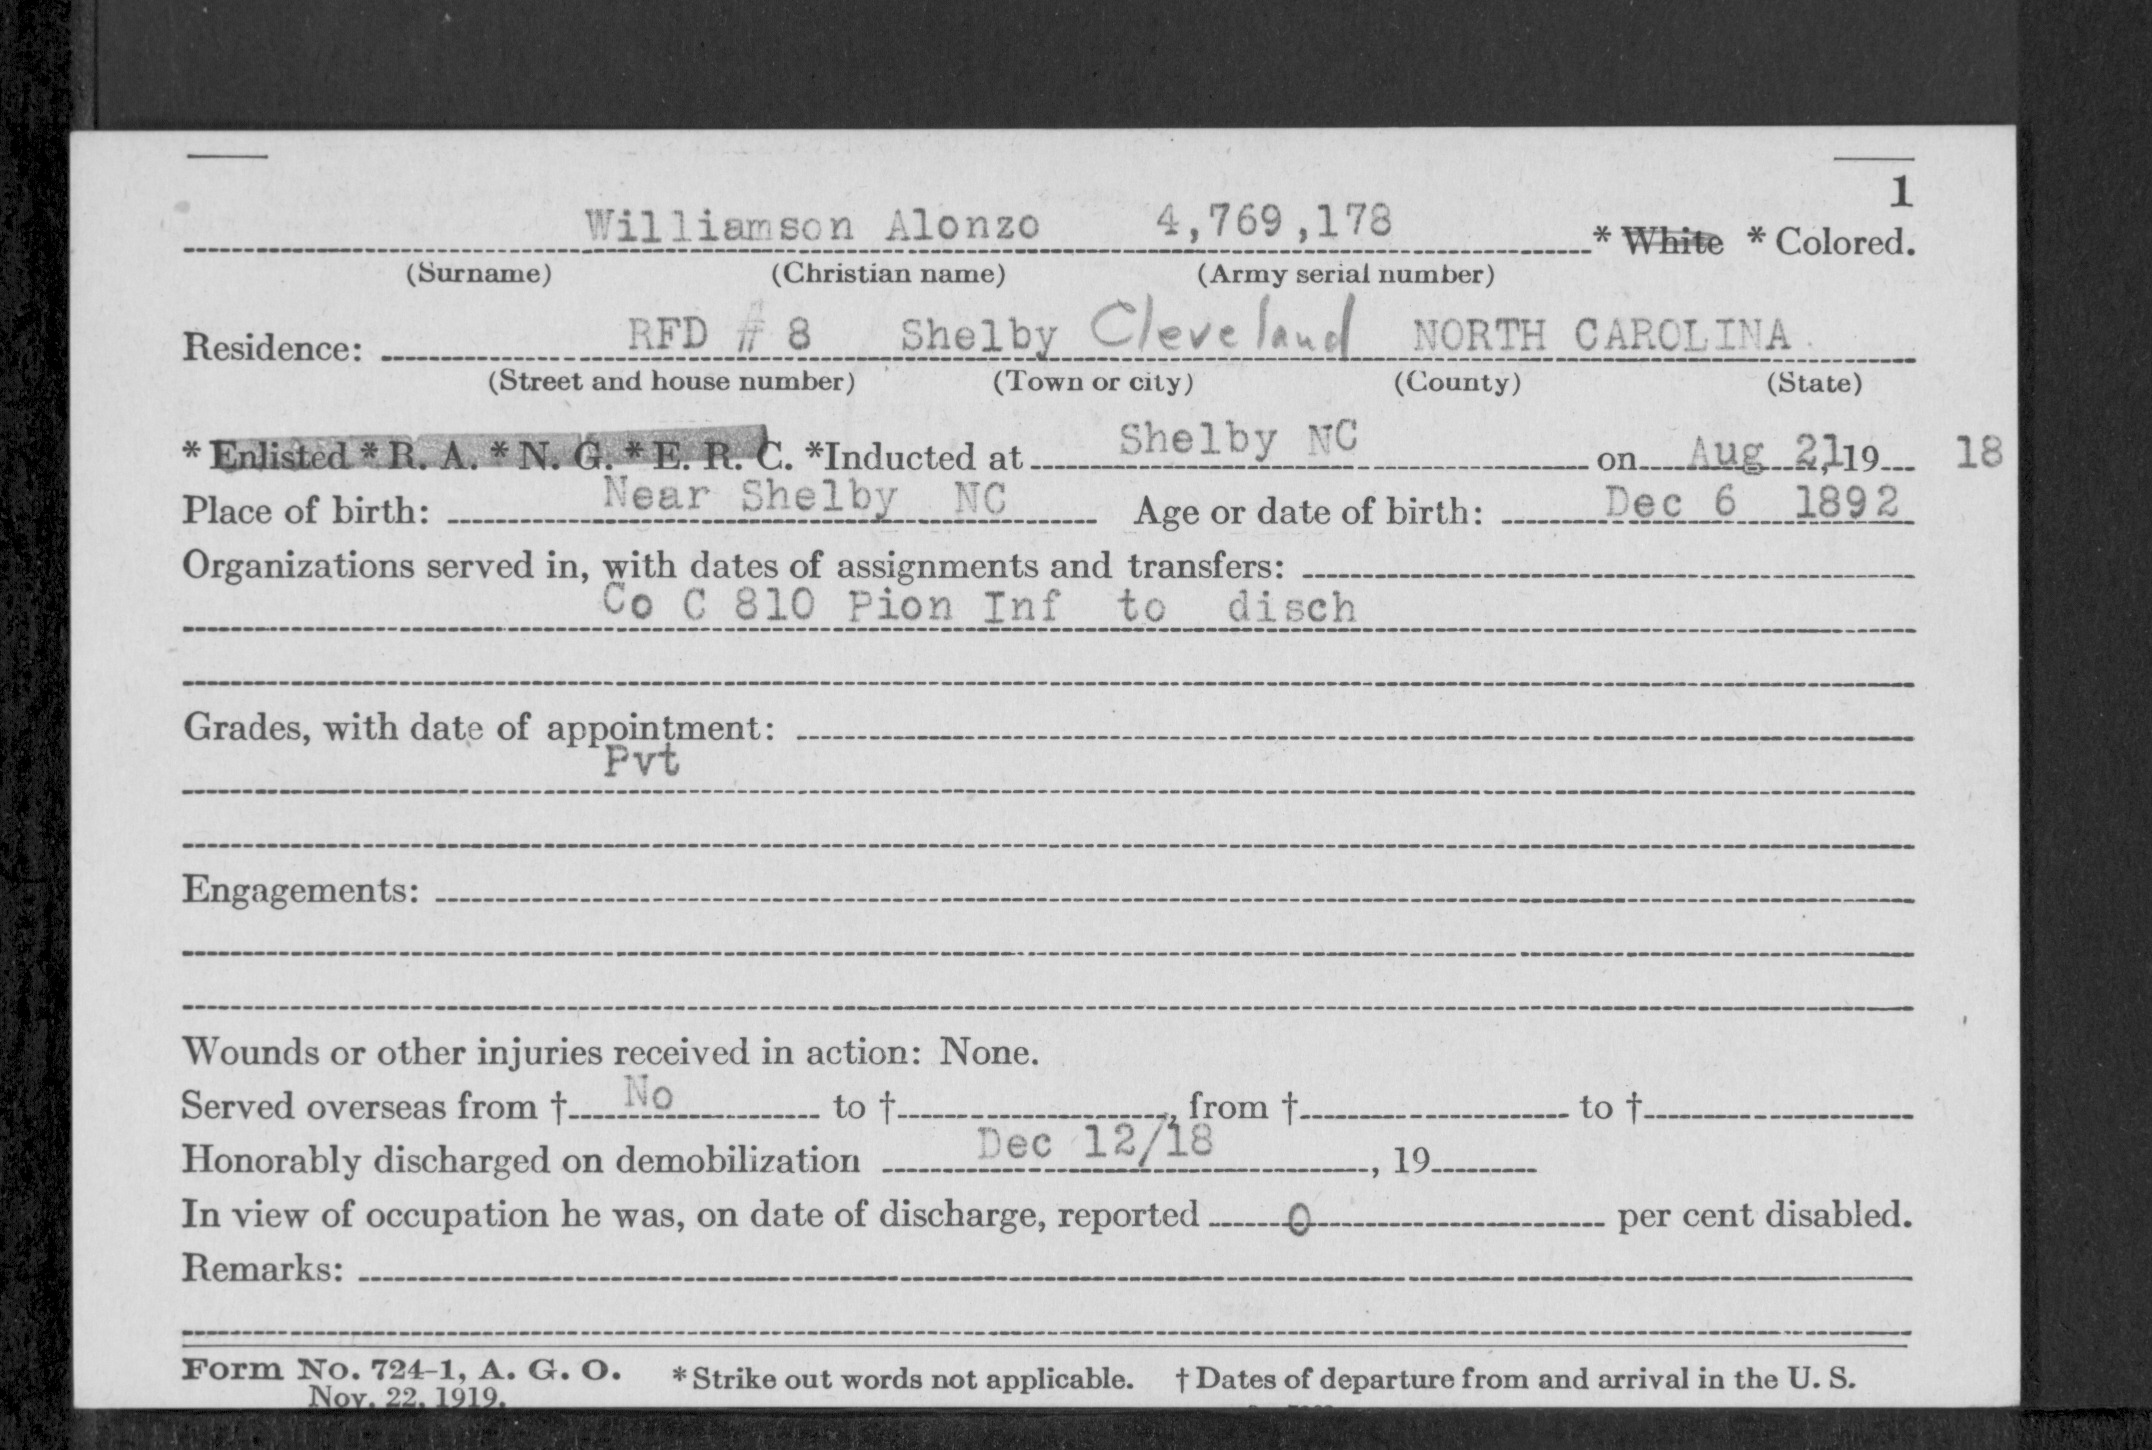 1
Williamson Alonzo 4,769,178 * White * Colored.
(Surname) (Christian name) (Army serial number)
Residence: RFD # 8 Shelby Cleveland NORTH CAROLINA
(Street and house number) (Town or city) (County) (State)
* Enlisted * R. A. * N. G. * E. R. C. *Inducted at Shelby NC on Aug 21, 19 18
Place of birth: Near Shelby NC Age or date of birth: Dec 6 1892
Organizations served in, with dates of assignments and transfers:
Co C 810 Pion Inf to disch
Grades, with date of appointment:
Pvt
Engagements:
Wounds or other injuries received in action: None.
Served overseas from † No to †, from † to †
Honorably discharged on demobilization Dec 12/18, 19
In view of occupation he was, on date of discharge, reported 0 per cent disabled.
Remarks:
Form No. 724-1, A. G. O. * Strike out words not applicable. † Dates of departure from and arrival in the U. S.
Nov. 22, 1919.